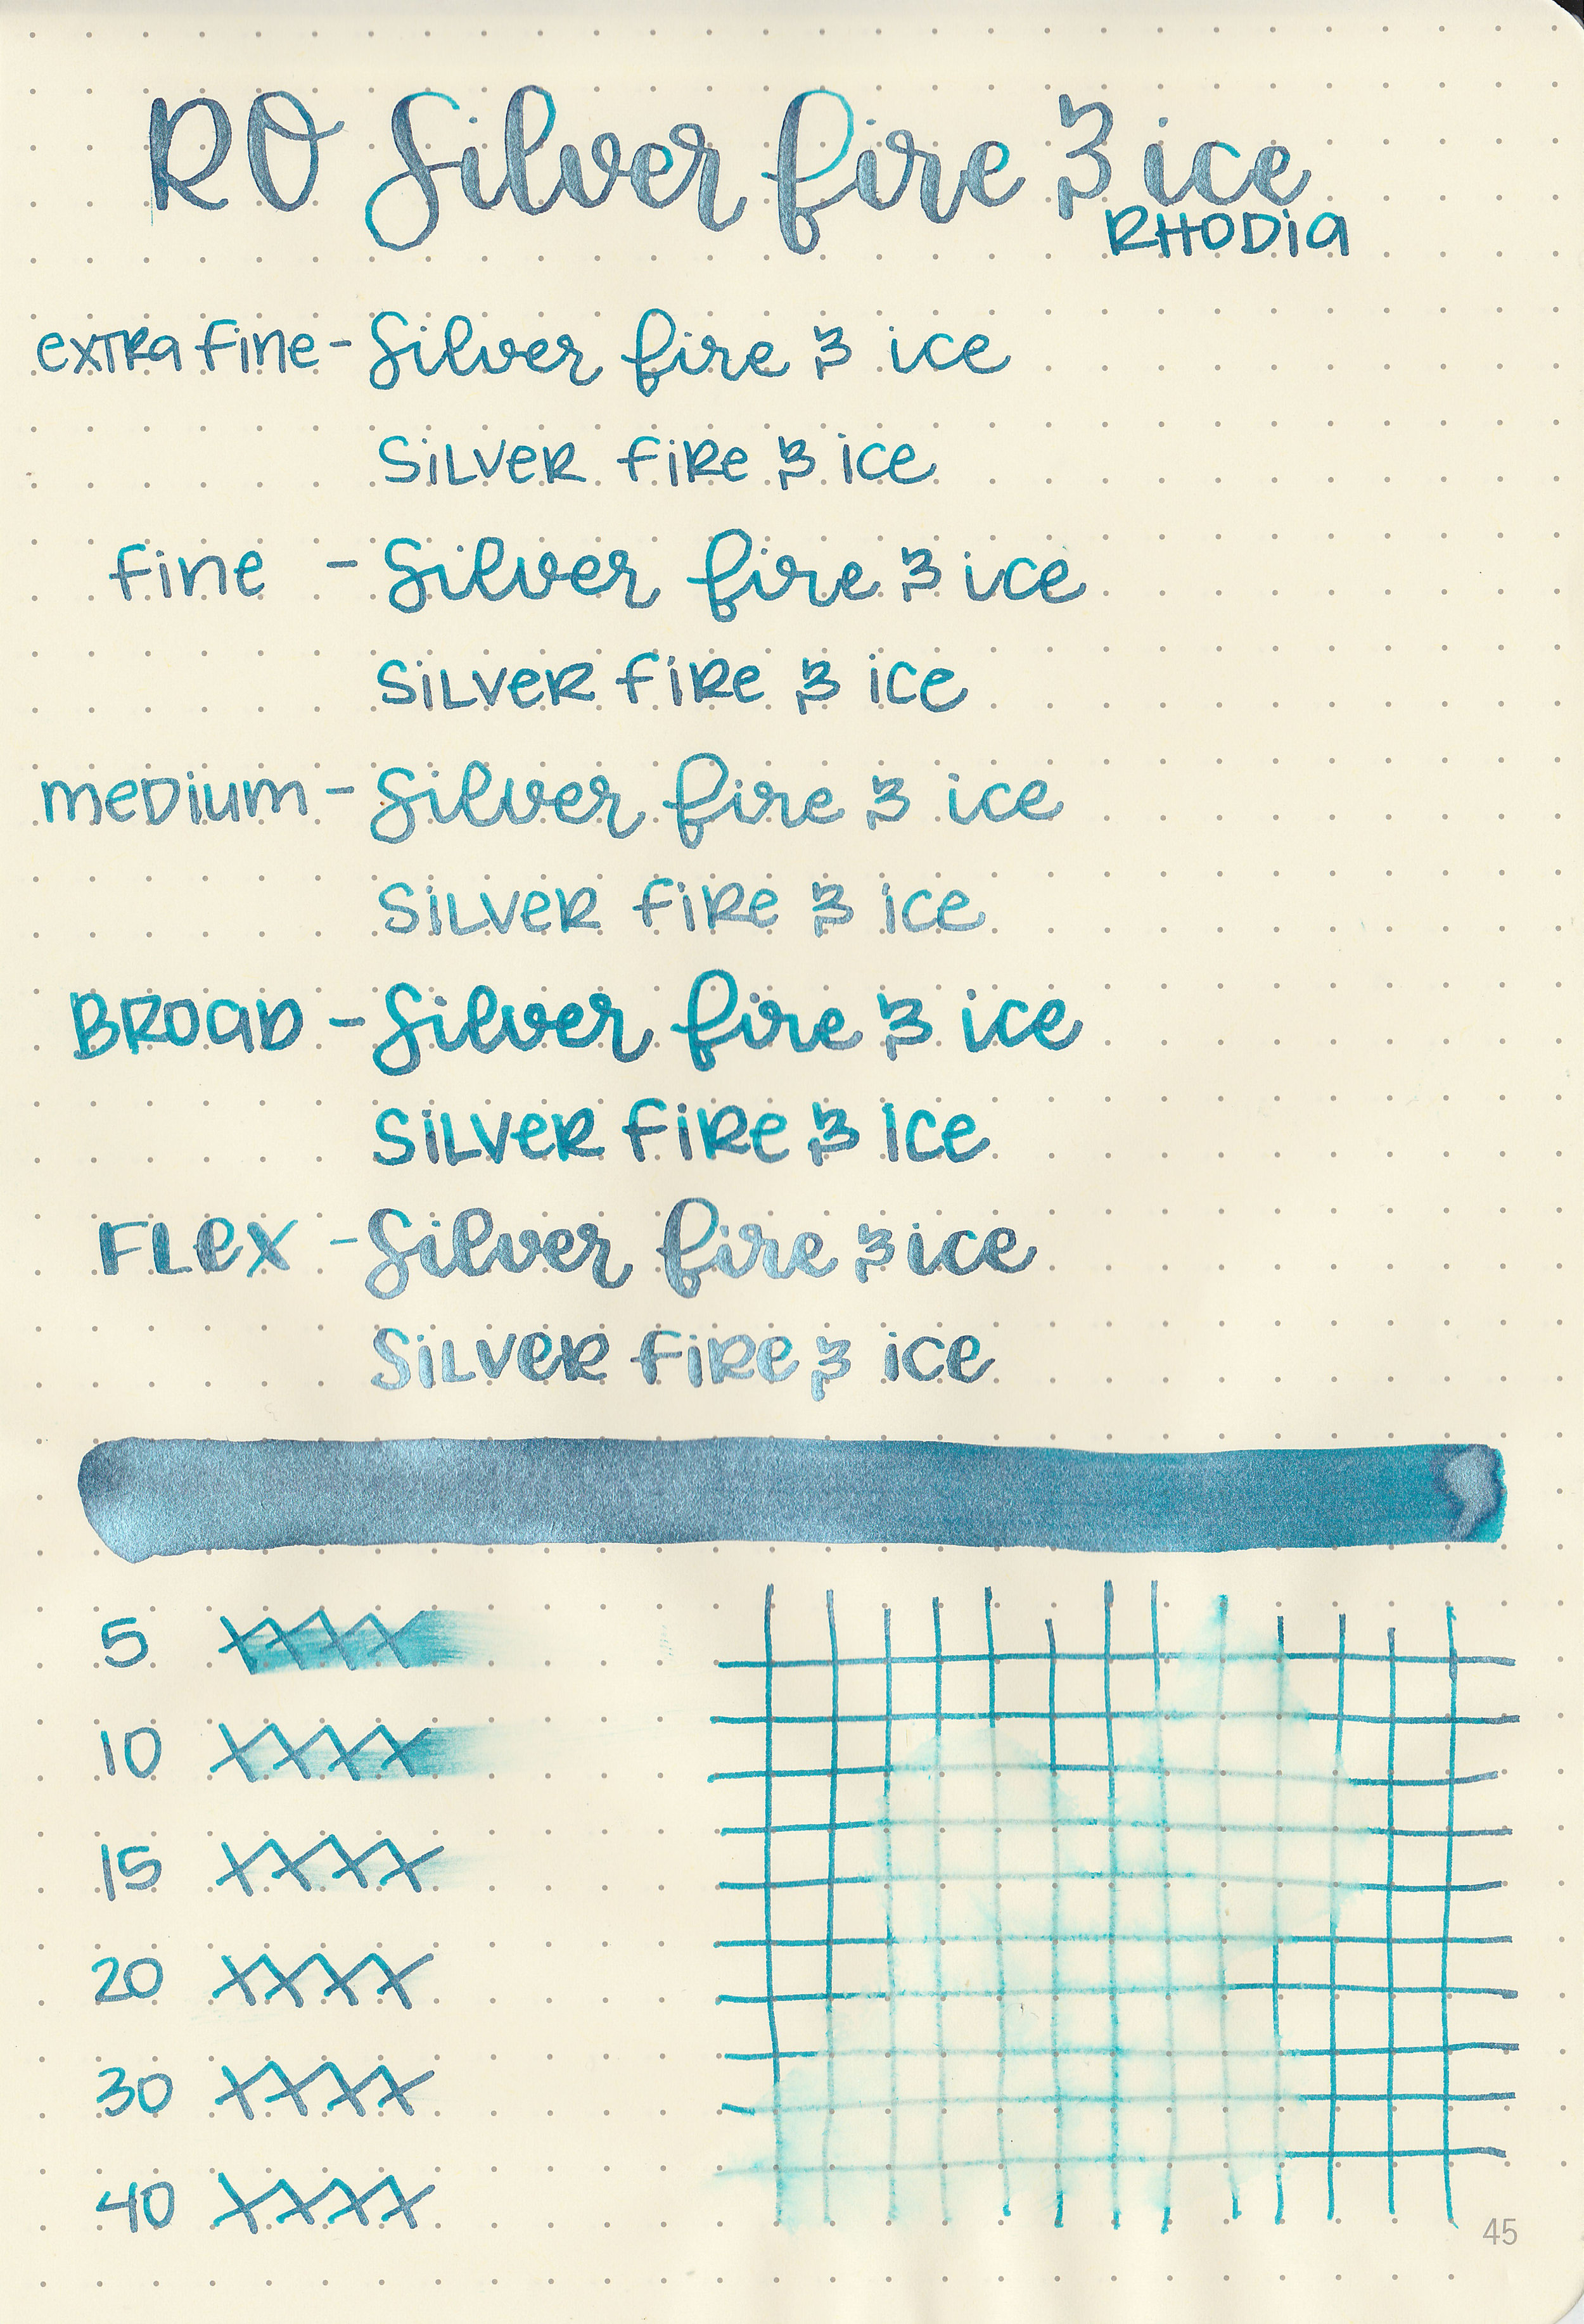 RO Silver fire & ice
RHODIA
extra fine - Silver fire & ice
Silver fire & ice
fine - Silver fire & ice
Silver fire & ice
medium - Silver fire & ice
Silver fire & ice
Broad - Silver fire & ice
Silver fire & ice
Flex - Silver fire & ice
Silver fire & ice
5 XXXX
10 XXXX
15 XXXX
20 XXXX
30 XXXX
40 XXXX
45